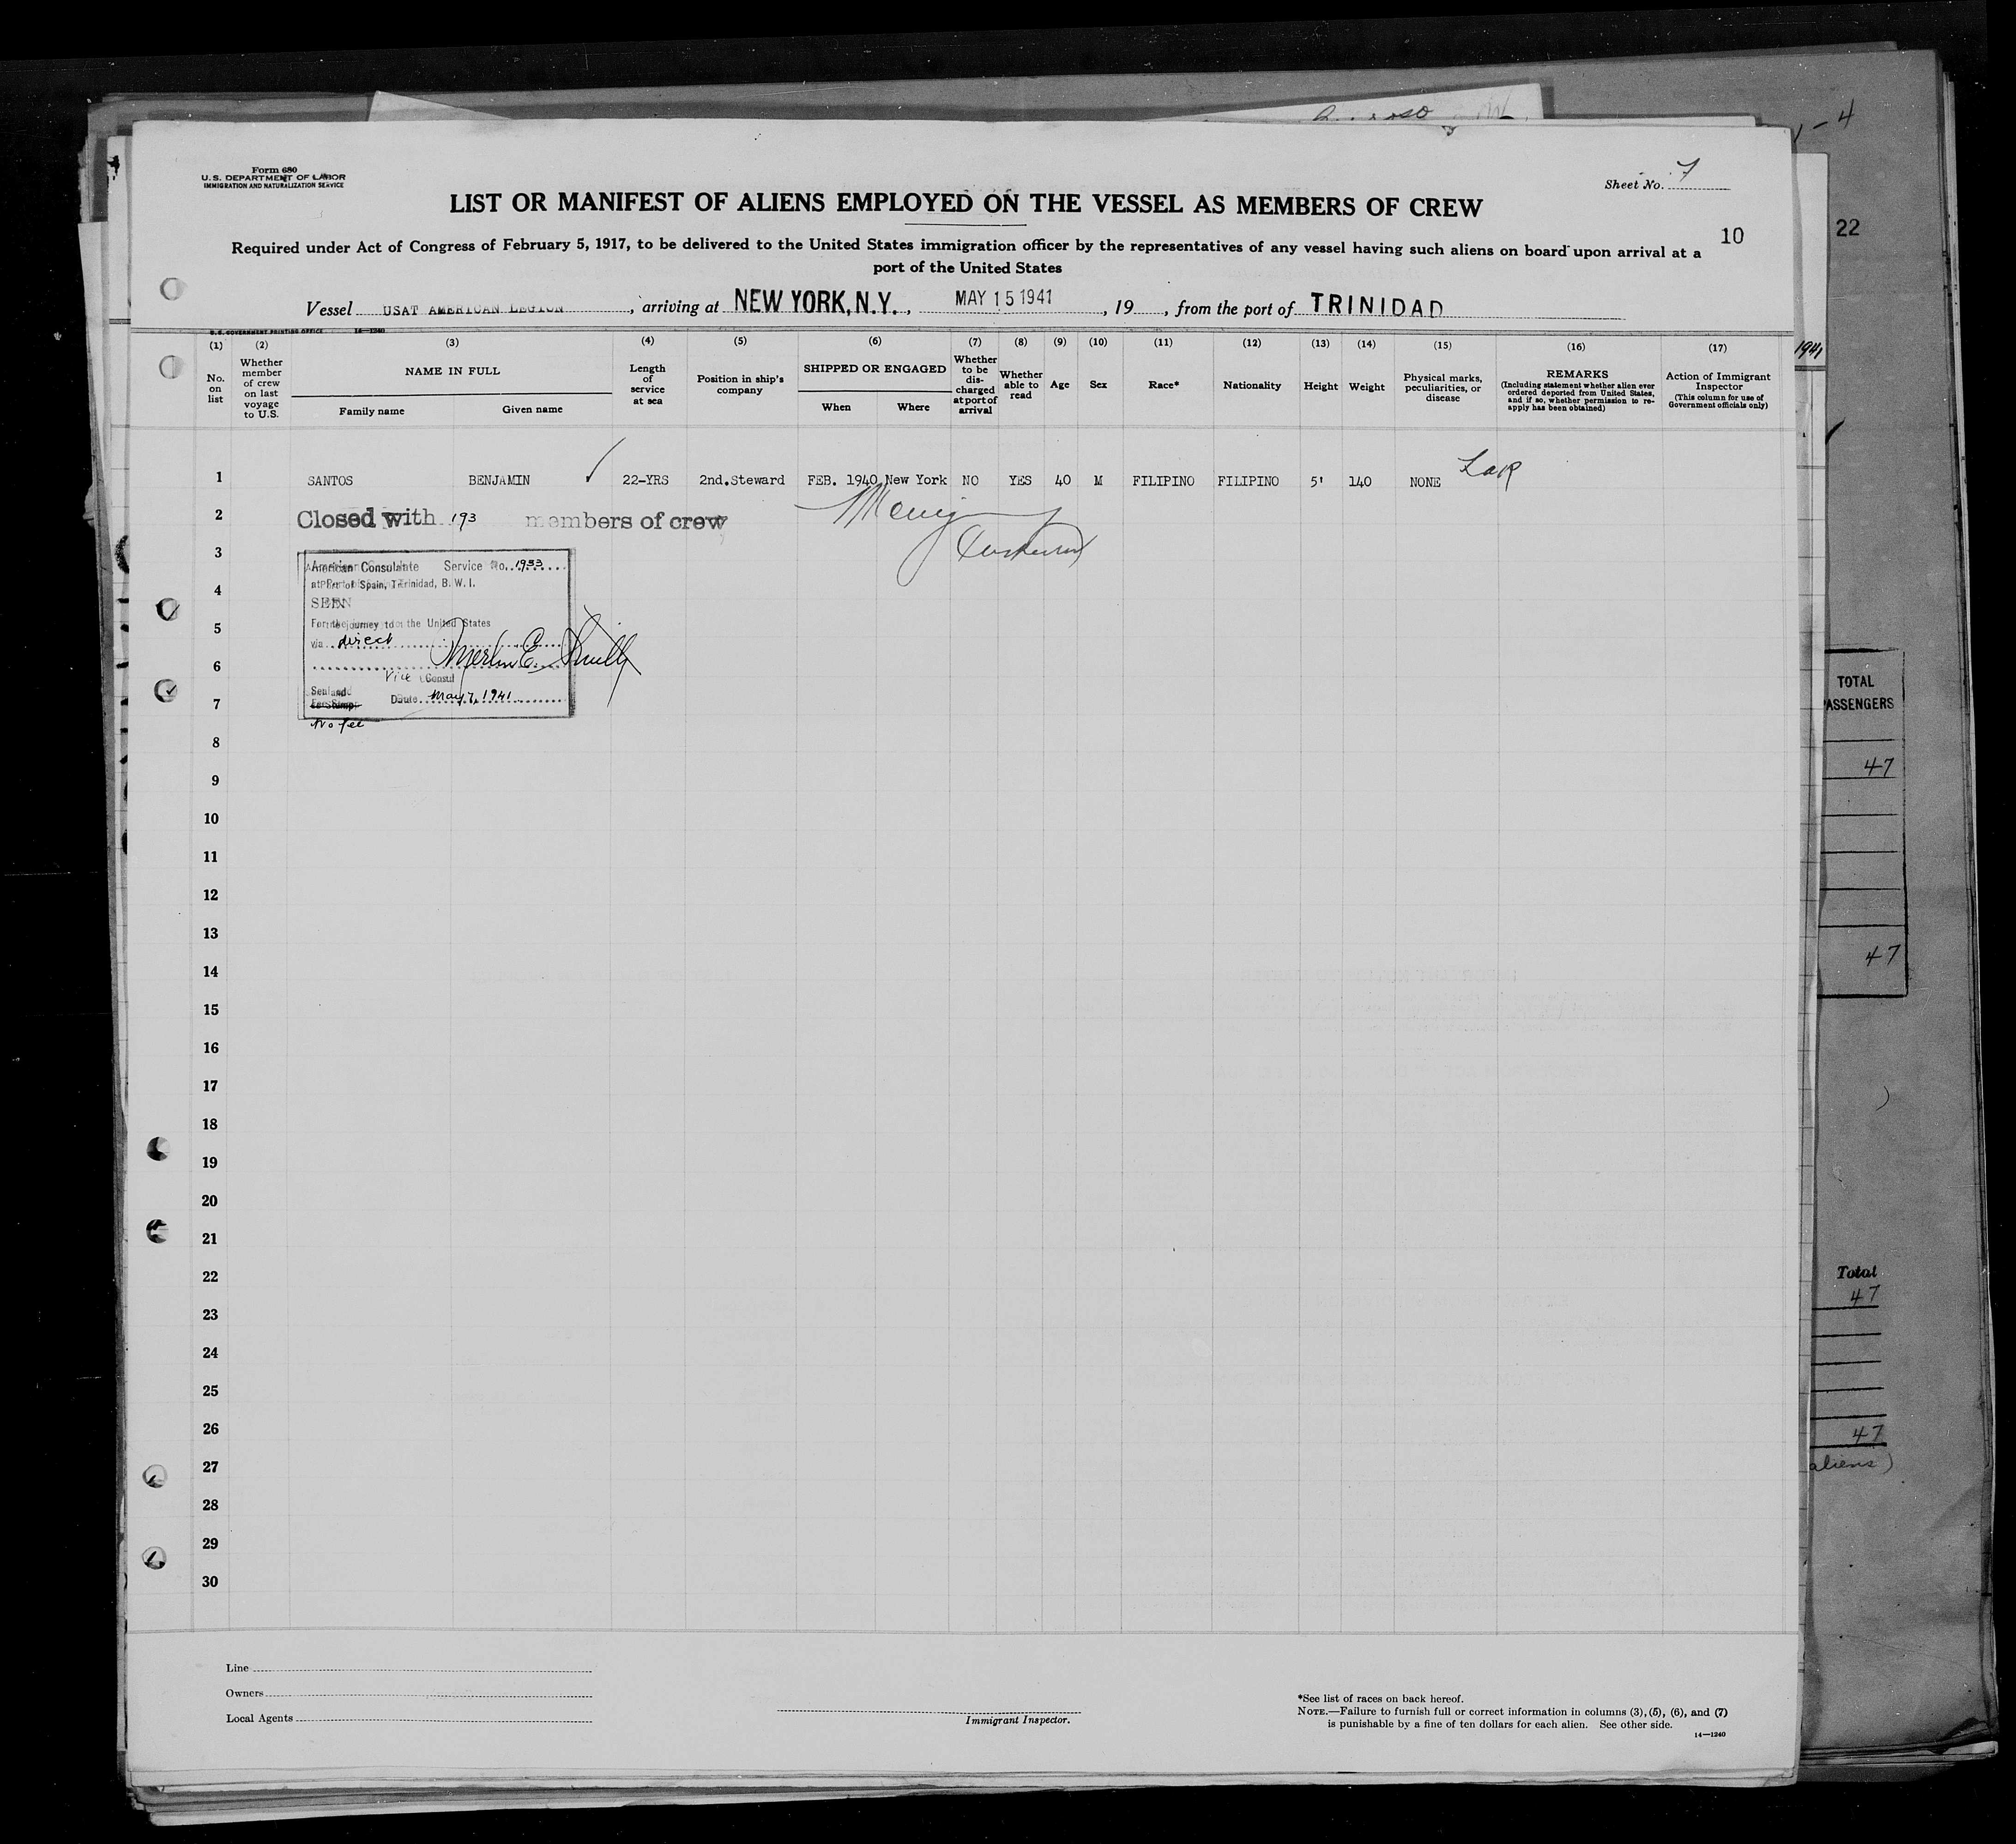 Form 680
U.S. DEPARTMENT OF LABOR
IMMIGRATION AND NATURALIZATION SERVICE
Sheet No. 7
LIST OR MANIFEST OF ALIENS EMPLOYED ON THE VESSEL AS MEMBERS OF CREW
10
22
Required under Act of Congress of February 5, 1917, to be delivered to the United States immigration officer by the representatives of any vessel having such aliens on board upon arrival at a
port of the United States
Vessel USAT AMERICAN LEGION, arriving at NEW YORK, N.Y., MAY 15 1941, 19, from the port of TRINIDAD
U.S. GOVERNMENT PRINTING OFFICE 14—1240
(1) No. on list
(2) Whether member of crew on last voyage to U.S.
(3) NAME IN FULL
Family name Given name
(4) Length of service at sea
(5) Position in ship's company
(6) SHIPPED OR ENGAGED
When Where
(7) Whether to be discharged at port of arrival
(8) Whether able to read
(9) Age
(10) Sex
(11) Race*
(12) Nationality
(13) Height
(14) Weight
(15) Physical marks, peculiarities, or disease
(16) REMARKS
(Including statement whether alien ever ordered deported from United States, and if so, whether permission to re-apply has been obtained)
(17) Action of Immigrant Inspector
(This column for use of Government officials only)
1941
1 SANTOS BENJAMIN 22-YRS 2nd.Steward FEB. 1940 New York NO YES 40 M FILIPINO FILIPINO 5' 140 NONE
2 Closed with 193 members of crew
3
American Consulate Service No. 1933
at Port of Spain, Trinidad, B. W. I.
4
SEEN
5
For the journey to the United States
via direct
6
Merlin E. Smith
Vice Consul
Seal and
7
Fee Stamp Date May 7, 1941
No fee
8
9
10
11
12
13
14
15
16
17
18
19
20
21
22
23
24
25
26
27
28
29
30
TOTAL
PASSENGERS
47
47
Total
47
47
aliens)
Line
Owners
Local Agents
Immigrant Inspector.
*See list of races on back hereof.
NOTE.—Failure to furnish full or correct information in columns (3), (5), (6), and (7)
is punishable by a fine of ten dollars for each alien. See other side.
14—1240